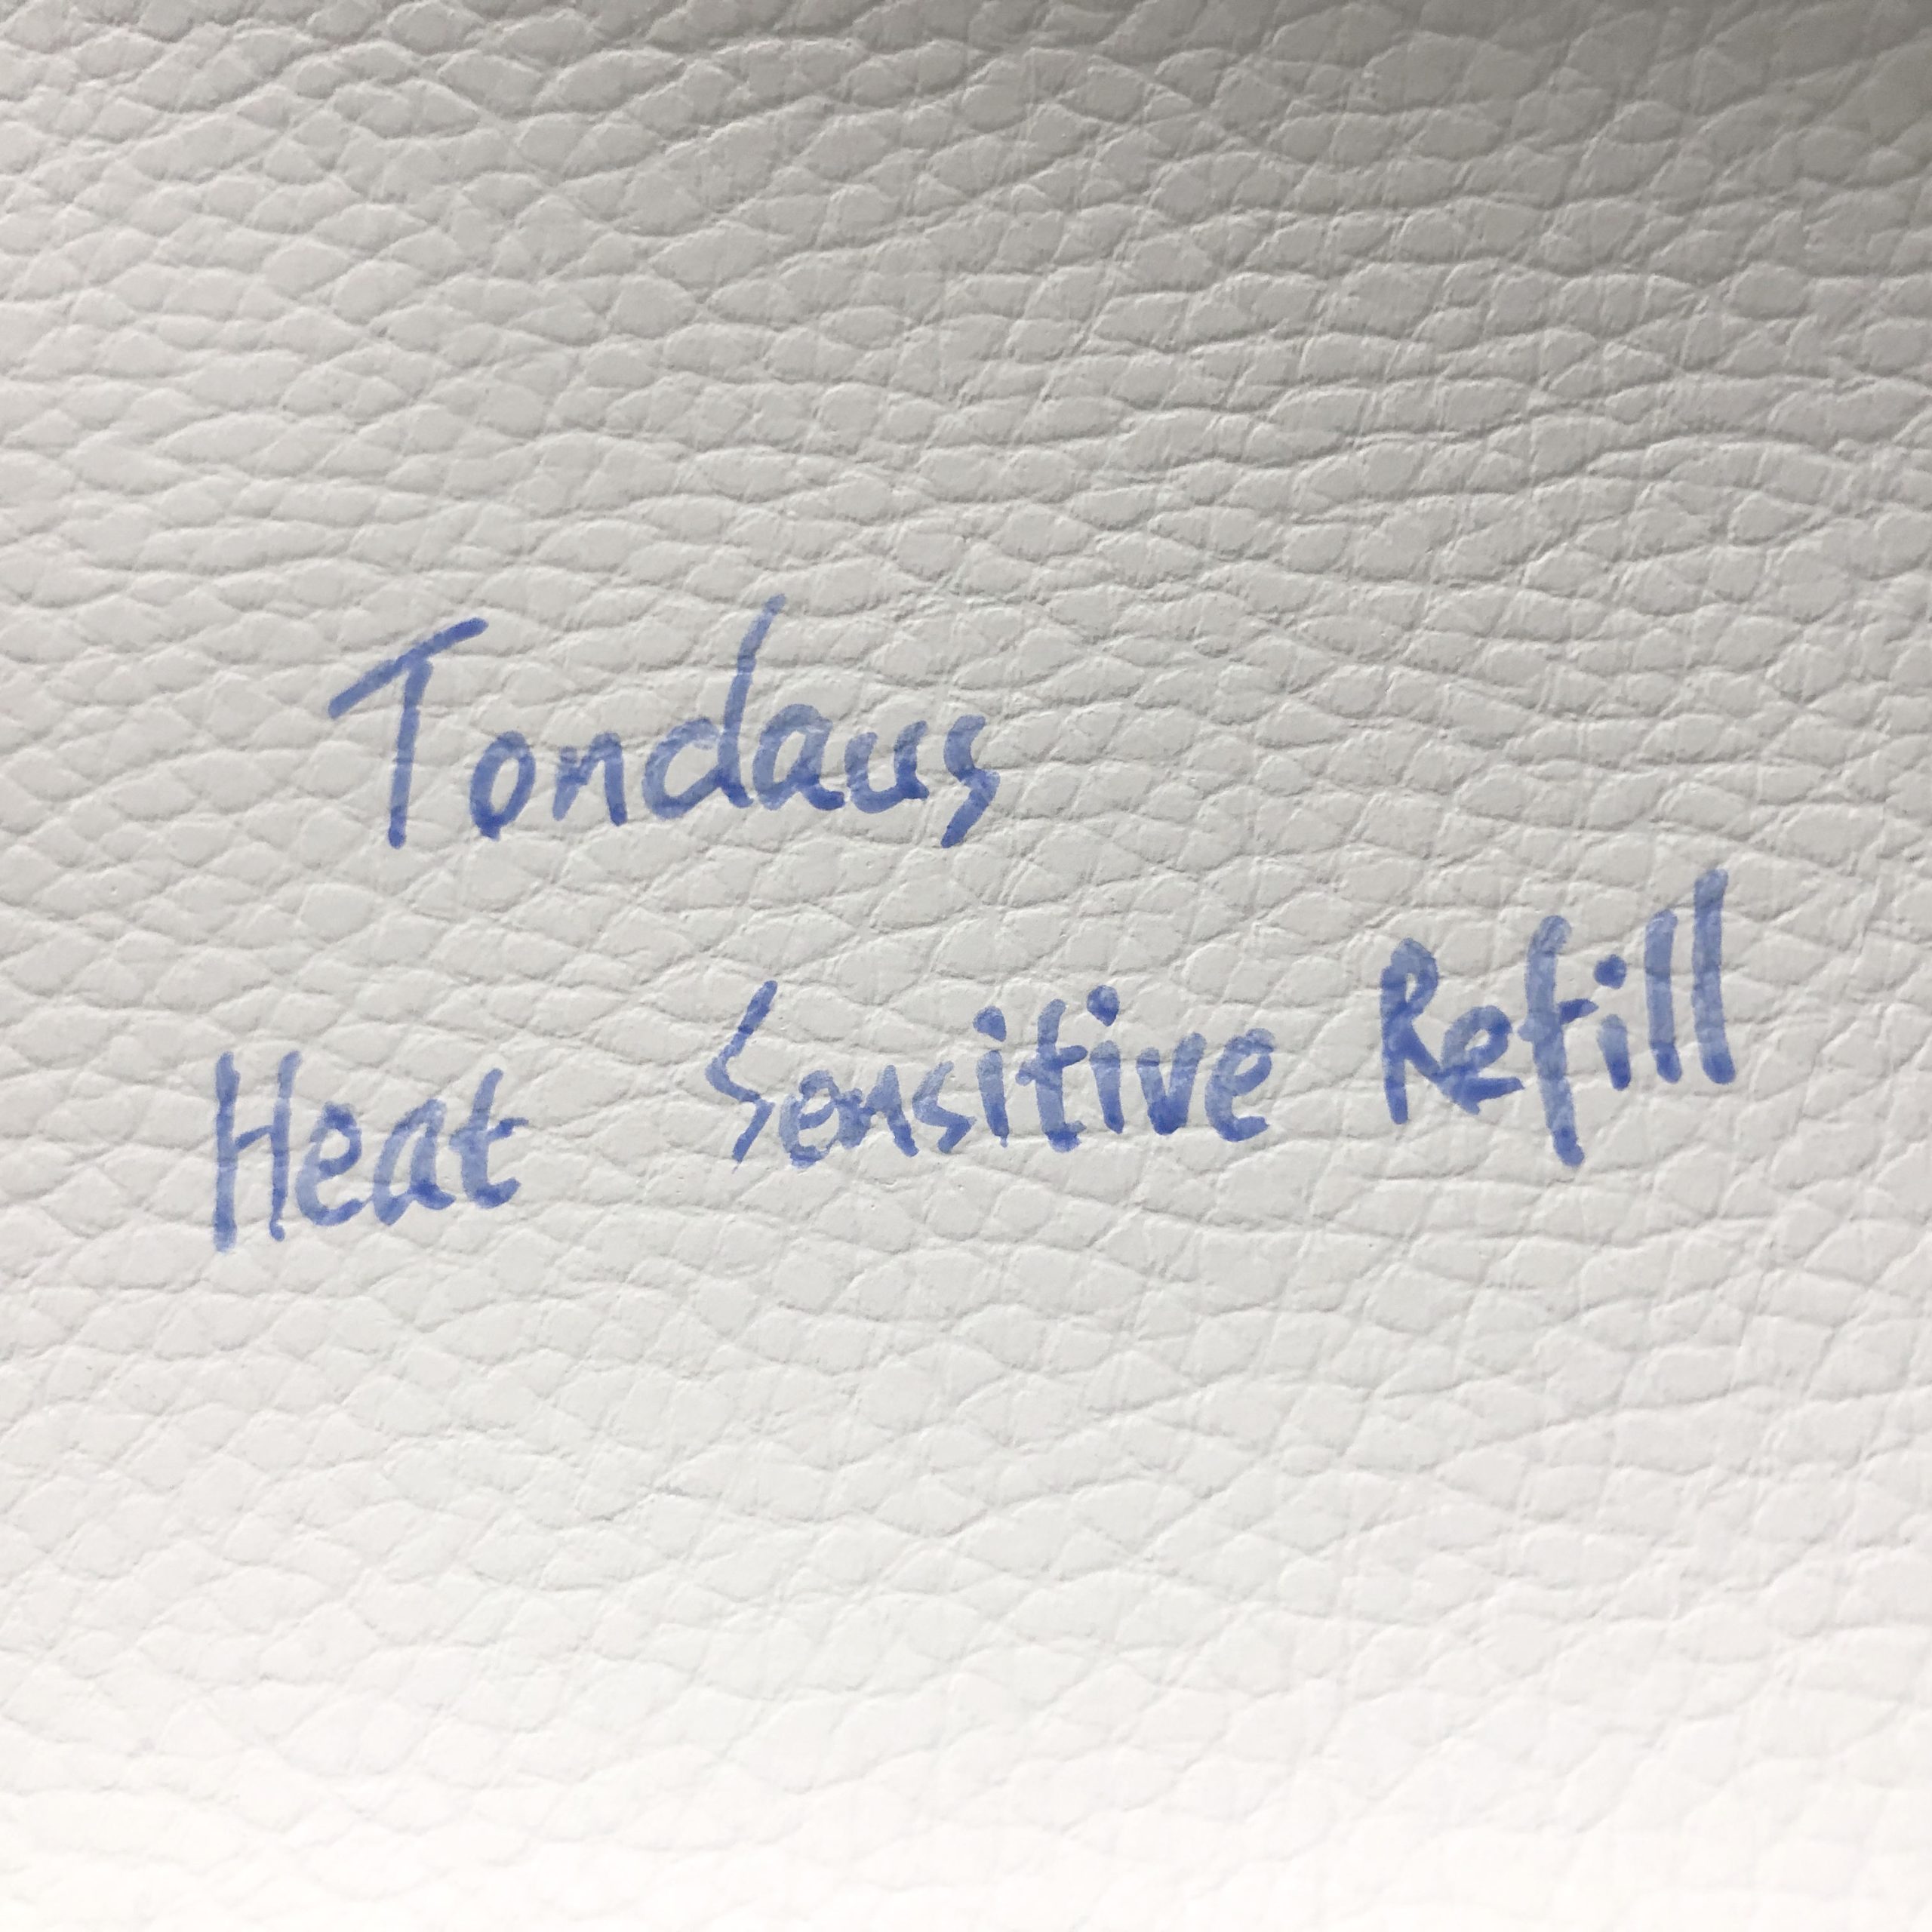 Tondaus
Heat Sensitive Refill